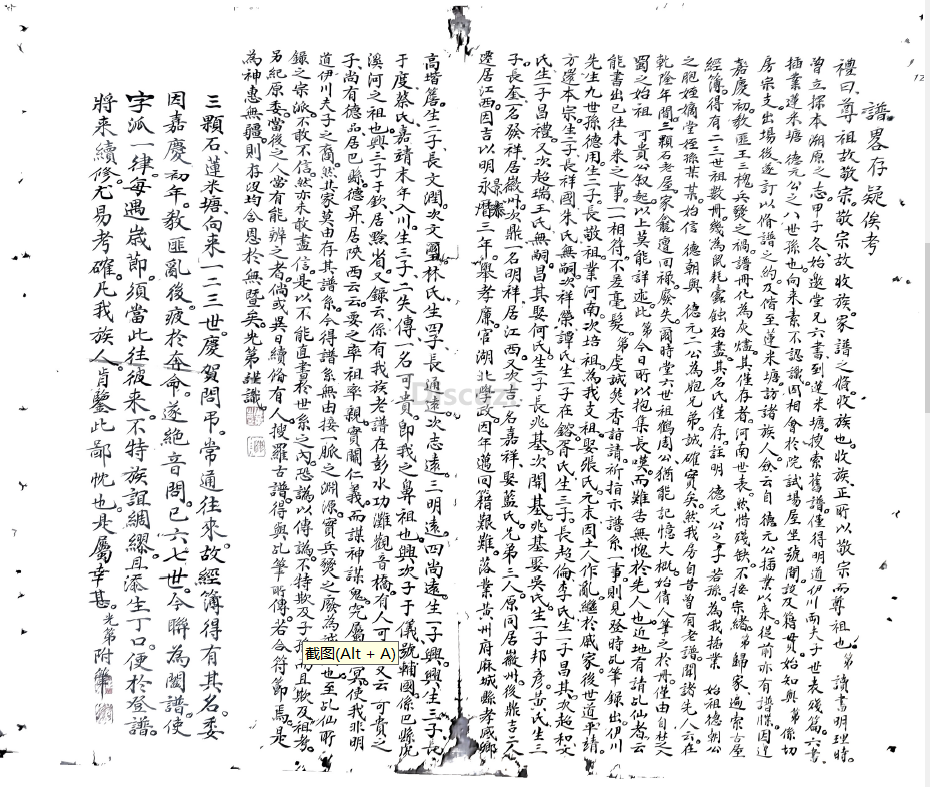 譜畧存疑俟考
禮曰尊祖故敬宗敬宗故收族家譜之脩收族也收族正所以敬宗而尊祖也第讀書明理時
曾立探本溯原之志甲子冬始邀堂兄六書到蓮米塘搜索舊譜僅得明道伊川兩夫子世表殘篇六書
插業蓮米塘德元公之八世孫也向來素不認識因相會於院試場屋坐號閒談及籍毋貫始知與第係切
房宗支出場後遂訂以脩譜之約及偕至蓮米塘訪諸族人僉云自德元公插業以來從前亦有譜牒因遭
嘉慶初教匪王三槐兵燹之禍譜冊化為灰燼其僅存者河南世表然惜殘缺不接宗緒第歸家遍索古屋
經簿得有二三世祖數冊幾為鼠耗蠹蝕殆盡其名氏僅存註明德元公之子若孫為我插業始祖德朝公
之胞姪嫡堂姪孫某某始信德朝與德元二公為胞兄弟誠確實矣然我房自昔曾有老譜聞諸先人云在
乾隆年間三顆石老屋家龕遭回祿廢失爾時堂六世祖鶴周公猶能記憶大概始倩人筆之於冊僅由自楚入
蜀之始祖可貴公敘起以上莫能詳述此第今日所以抱集長嘆而難告無愧於先人也近地有請乩仙者云
能書出已往未來之事一一相符不差毫髮第虔誠焚香詣請祈指示譜系一事則見登時乩筆錄出伊川
先生九世孫德用生二子長敬祖業河南次培祖為我支祖娶張氏元末因土人作亂繼於戚家後世道平靖
方還本宗生二子長祥國朱氏無嗣次祥榮譚氏生一子在鎔胥氏生三子長超倫李氏生一子昌其次超和文
氏生一子昌禮又次超瑞王氏無嗣昌其娶何氏生二子長兆基次開基兆基娶吳氏生一子邦彥黃氏生三
子長奎一名發祥居徽州次鼎一名明祥居江西又次吉名嘉祥娶藍氏兄弟三人原同居徽州後鼎吉二人
遷居江西因吉以明永曆三年舉孝廉官湖北學政因年邁回籍艱難落業黃州府麻城縣孝感鄉
景泰
高堦簷生二子長文潤次文璽林氏生四子長通遠次志遠三明遠四尚遠生一子興興生三子長
于度蔡氏嘉靖末年入川生三子二失傳一名可貴即我之鼻祖也興次子于儀號輔國係巴縣虎
溪河之祖也興三子于欽居黔省又錄云係有我族老譜在彭水功灘觀音橋有人可
又云可貴之
子尚有德品居巴縣德昇居陝西云云要之率祖率親實關仁義而謀神謀鬼究屬
冥使我非明
道伊川夫子之裔然此家莫由存其譜系今得譜系無由接一脈之淵源實兵燹之廢為
也至乩仙所
錄之宗派不敢不信然亦未敢盡信是以不能直書於世系之內恐譌以傳譌不特欺及子
而且欺及祖考
另紀原委當後之人當有能辨之者倘或異日續脩有人搜羅古譜得與乩筆所傳若合符節焉是
為神惠無疆則存沒均含恩於無暨矣光第謹識
三顆石蓮米塘向來一二三世慶賀問弔常通往來故經簿得有其名委
因嘉慶初年教匪亂後疲於奔命遂絕音問已六七世今聯為闔譜使
字派一律每遇歲節須當此往彼來不特族誼綢繆且添生丁口便於登譜
將來續修尤易考確凡我族人肯鑒此鄙忱也是屬幸甚光第附筆
截图(Alt + A)
Discuz!